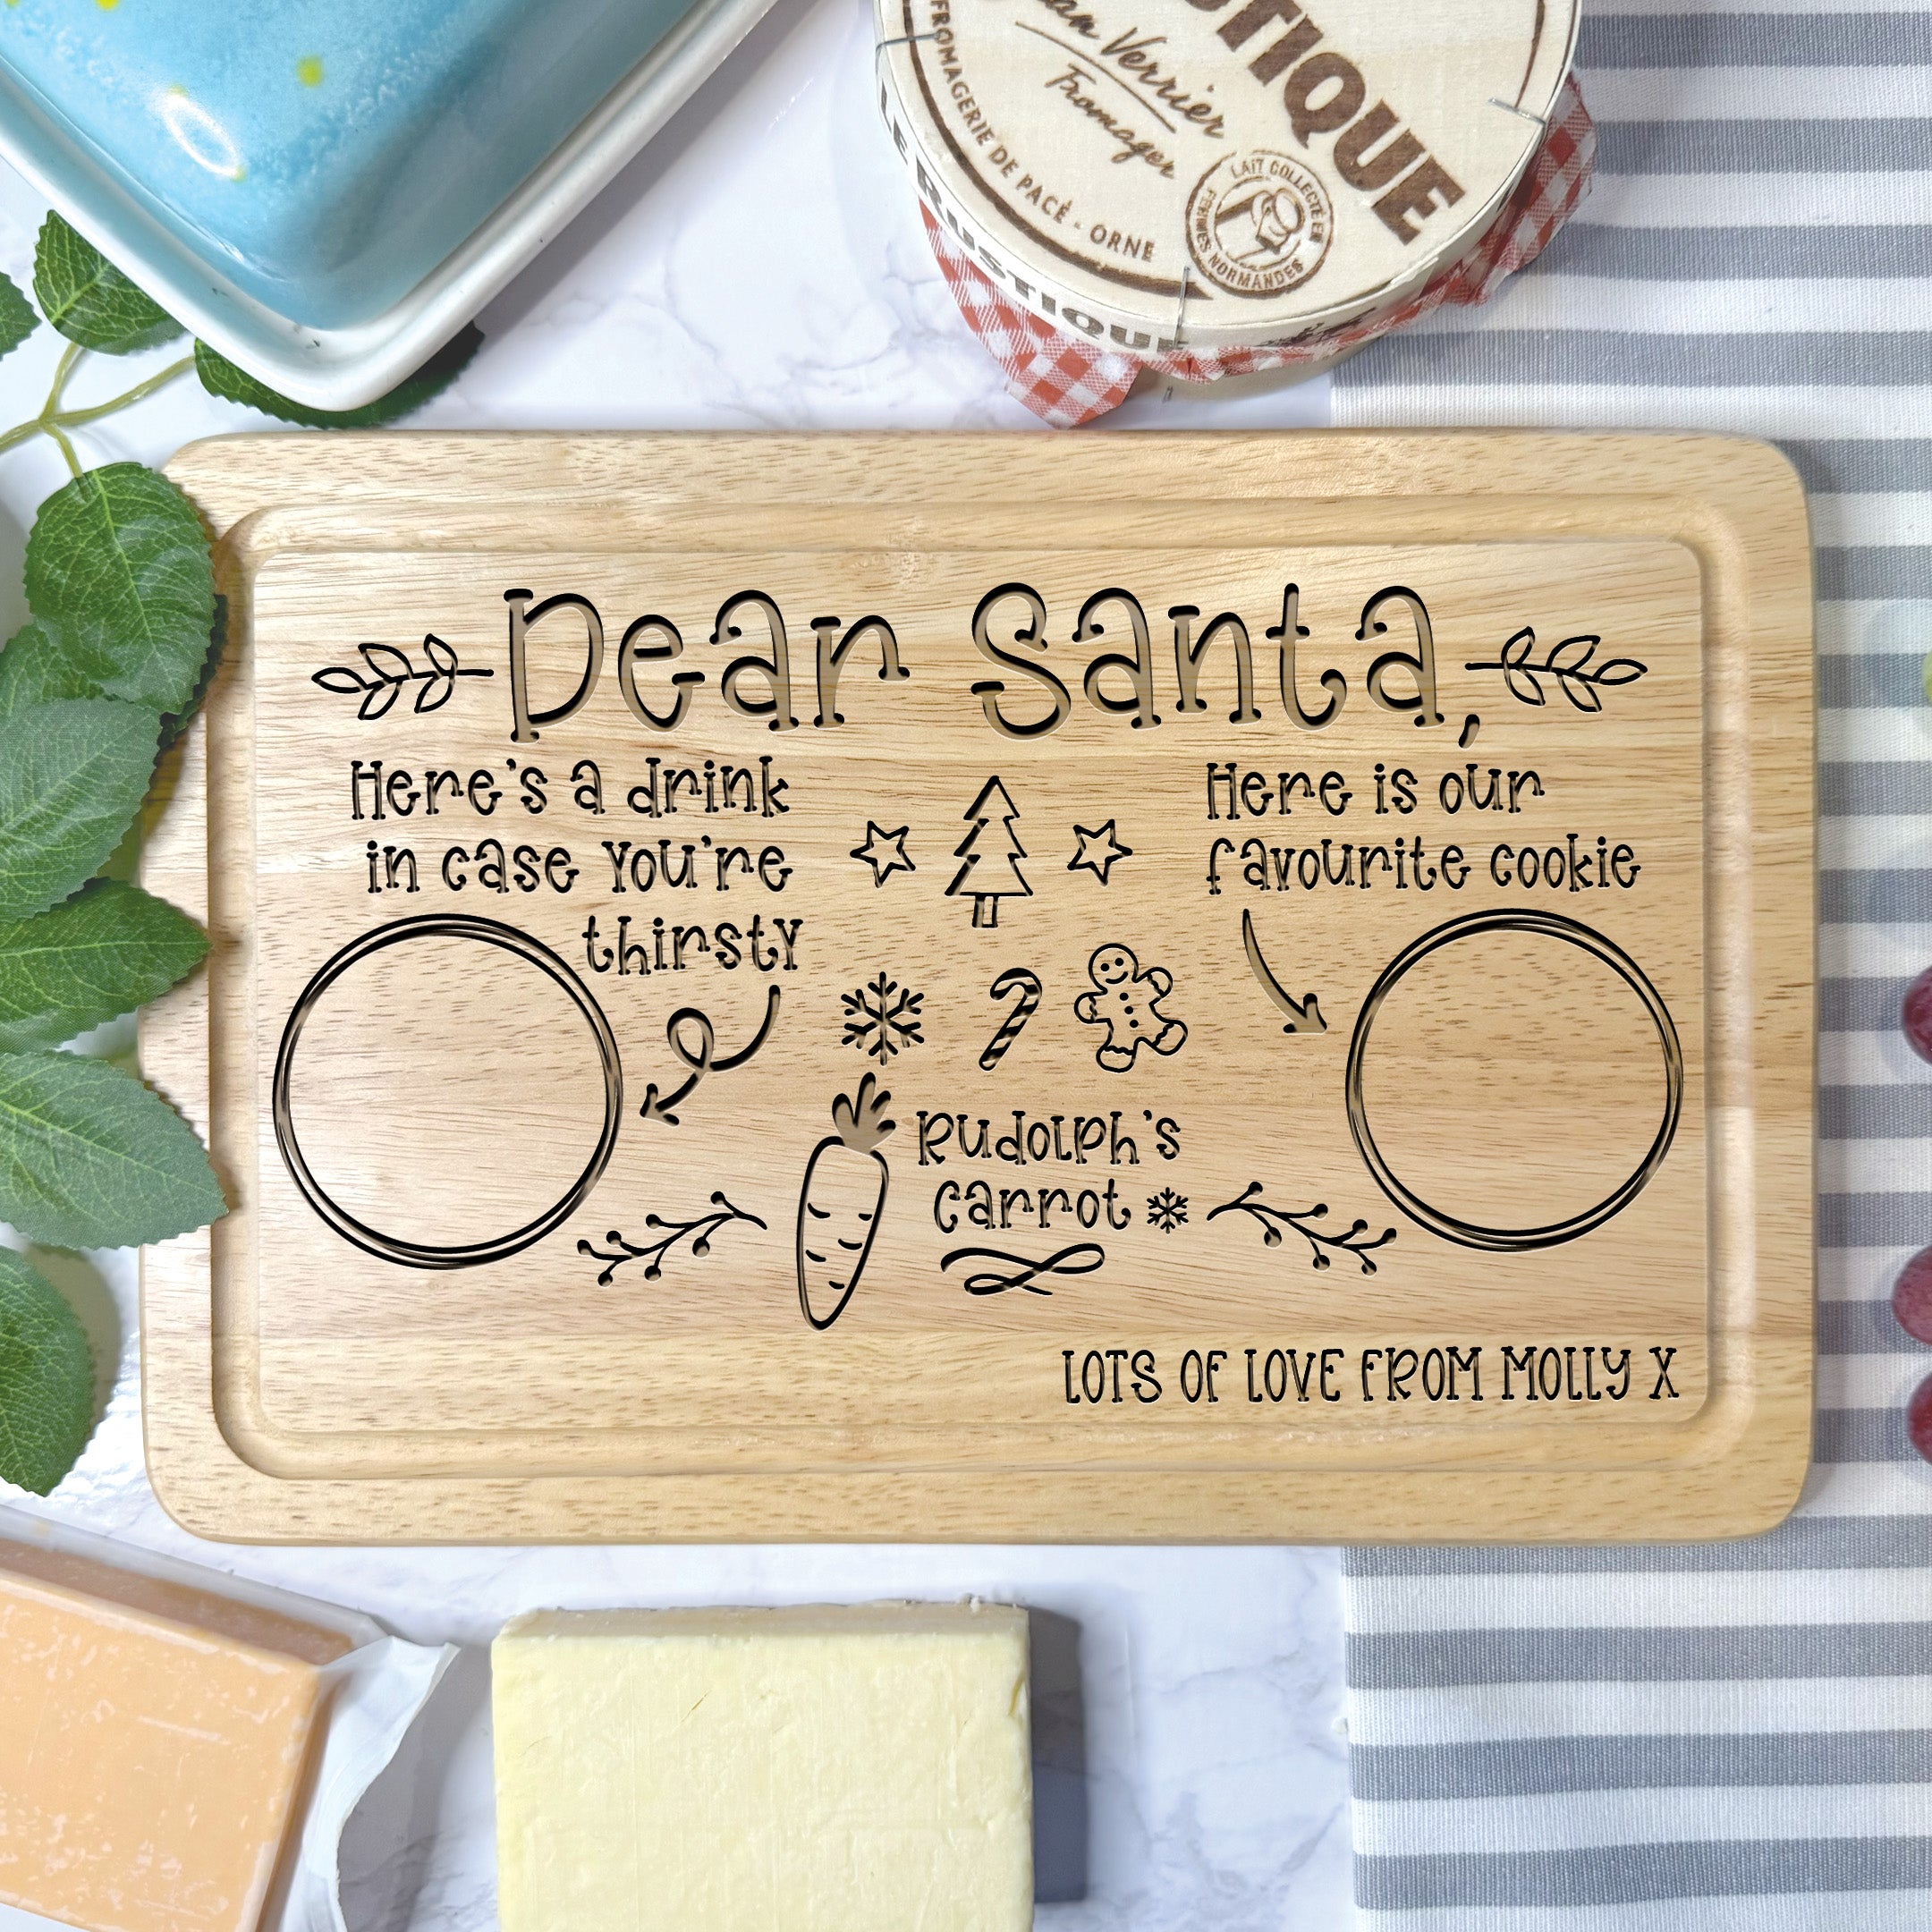 Jean Verrier
Fromager
FROMAGERIE DE PACÉ - ORNE
LAIT COLLECTÉ EN
NORMANDES
LE RUSTIQUE
Dear Santa,
Here's a drink
in case you're
thirsty
Here is our
favourite cookie
Rudolph's
carrot
LOTS OF LOVE FROM MOLLY X